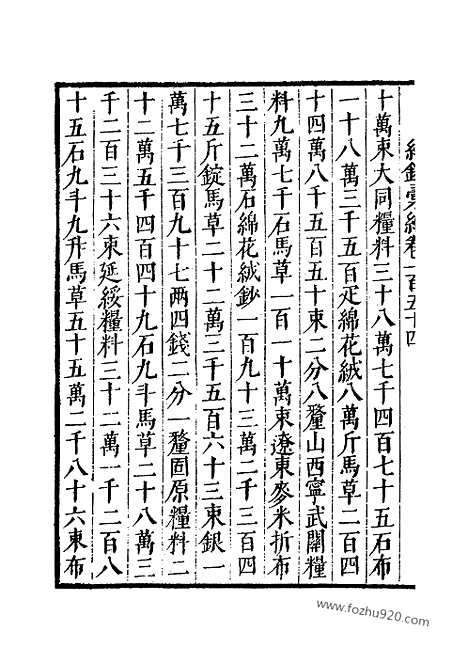 紀錄彙編卷一百五十四
十萬束大同糧料三十八萬七千四百七十五石布
一十八萬三千五百疋綿花絨八萬斤馬草二百四
十四萬八千五百五十束二分八釐山西寧武關糧
料九萬七千石馬草一百一十萬束遼東麥米折布
三十二萬石綿花絨鈔一百九十三萬二千三百四
十五斤錠馬草二十二萬三千五百六十三束銀一
萬七千三百九十七兩四錢二分一釐固原糧料二
十二萬五千四百四十九石九斗馬草二十八萬三
千二百三十六束延綏糧料三十二萬一千二百八
十五石九斗九升馬草五十五萬二千八十六束布
www.fozhu920.com